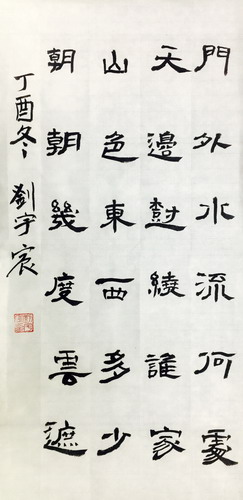 門外水流何處
天邊樹繞誰家
山色東西多少
朝朝幾度雲遮
丁酉冬 劉宇宸